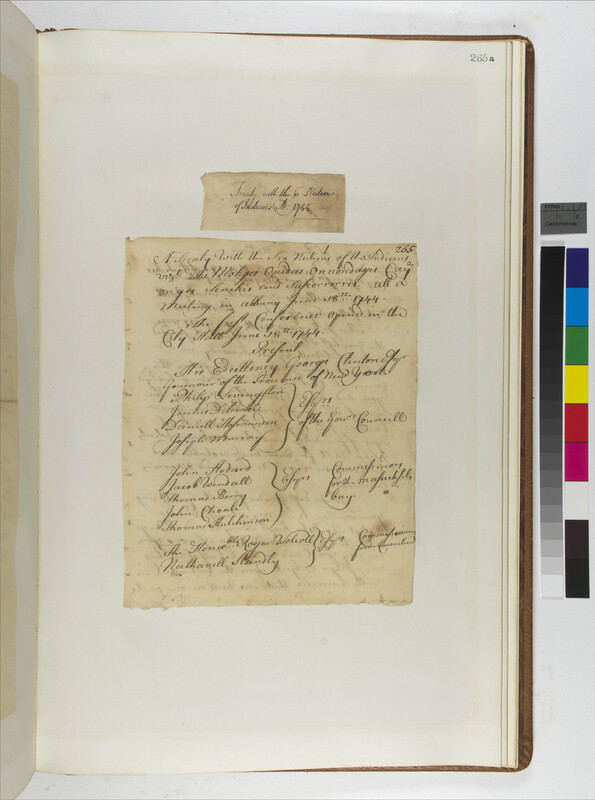 265a
Treaty with the 6 Nations
of Indians 1744
1
265
a
A Treaty With the Six Nations of the Indians
vizt The Mohogs Onidees Onnondages Cay
ougas Senekes and Tuskorores att a
Meeting in albany June 18th 1744
The first Conference opened in the
City Hall June 18th 1744
Present
His Excellency George Clinton Esqr
Governour of the Province of New York
Philip Livingston
Daniell Horsmanson
Joseph Murray
Esqrs
of the Govrs Councill
John Stodard
Jacob Wendall
Thomas Berry
John Choate
Thomas Hutchinson
Esqrs
Commissioners
for the Massachsets
bay
The Honoble Roger Wolcott
Nathaniell Standly
Esqrs
Commissioners
from Connecticut